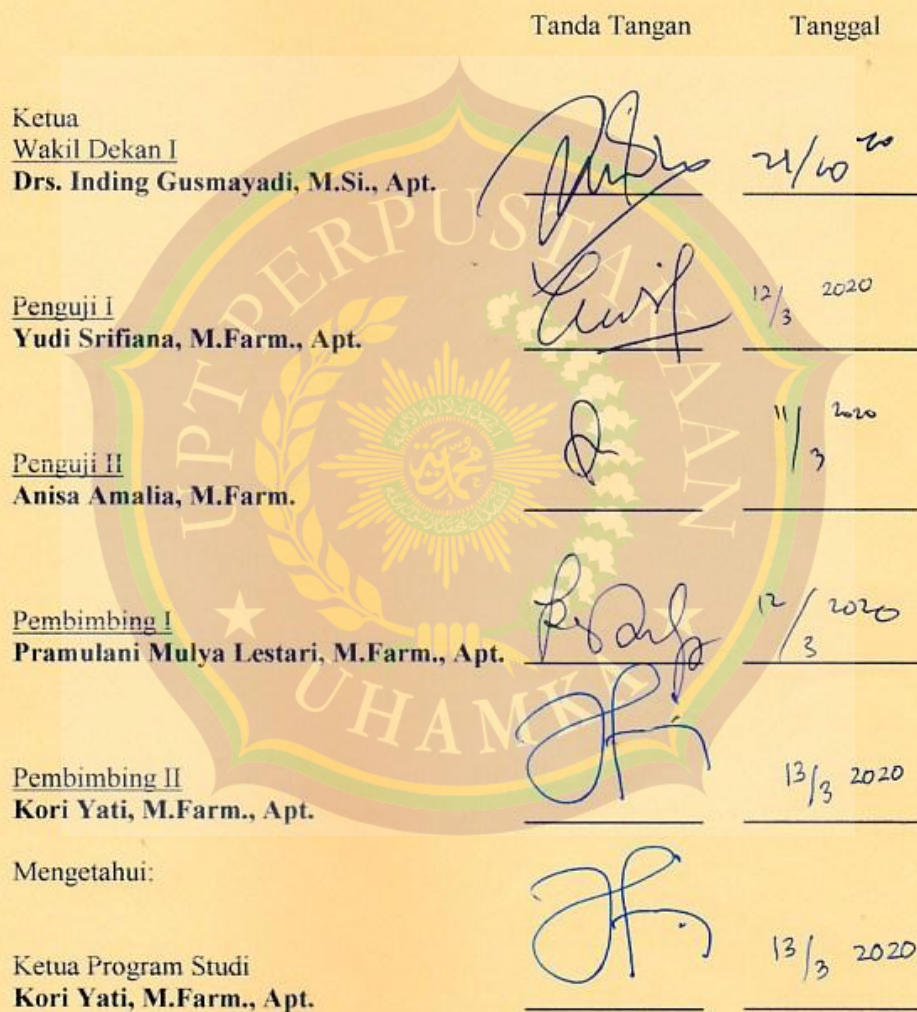 Tanda Tangan Tanggal
Ketua
Wakil Dekan I
Drs. Inding Gusmayadi, M.Si., Apt.
Penguji I
Yudi Srifiana, M.Farm., Apt. 12/3 2020
Penguji II
Anisa Amalia, M.Farm. 11/3 2020
Pembimbing I
Pramulani Mulya Lestari, M.Farm., Apt. 12/3 2020
Pembimbing II
Kori Yati, M.Farm., Apt. 13/3 2020
Mengetahui:
Ketua Program Studi
Kori Yati, M.Farm., Apt. 13/3 2020
UPT PERPUSTAKAAN
UHAMKA